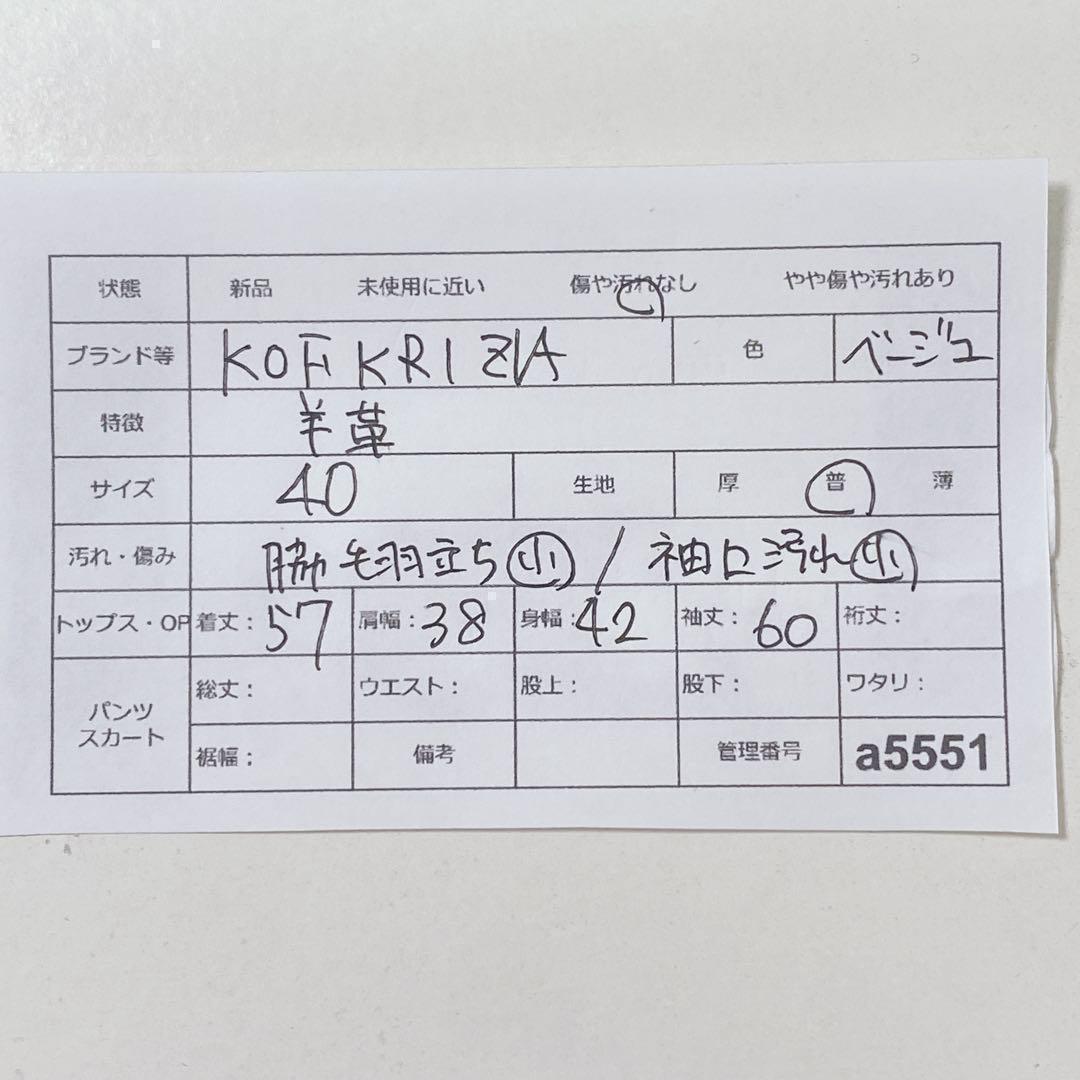 状態 新品 未使用に近い 傷や汚れなし やや傷や汚れあり
ブランド等 KOFI KRIZIA 色 ベージュ
特徴 羊革
サイズ 40 生地 厚 普 薄
汚れ・傷み 脇毛羽立ち小 / 袖口汚れ小
トップス・OP 着丈:57 肩幅:38 身幅:42 袖丈:60 裄丈:
パンツ スカート 総丈: ウエスト: 股上: 股下: ワタリ:
裾幅: 備考 管理番号 a5551